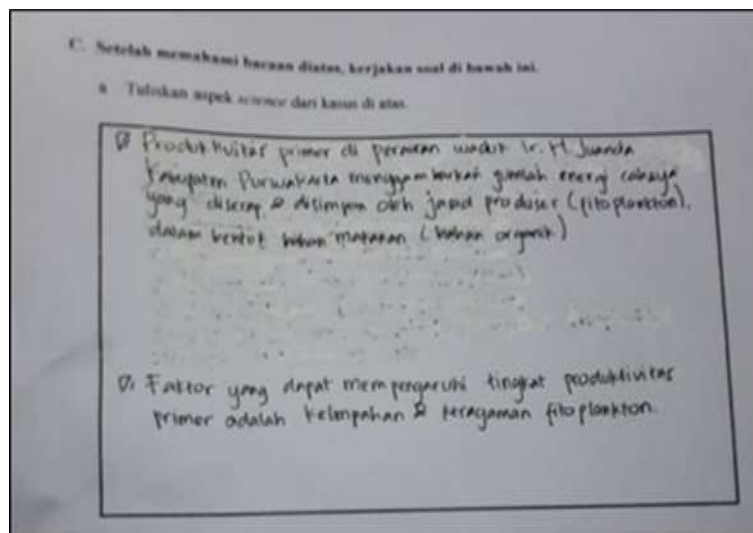 C. Setelah memahami bacaan diatas, kerjakan soal di bawah ini.
a Tuliskan aspek science dari kasus di atas
Produktivitas primer di perairan waduk Ir. H. Juanda
Kabupaten Purwakarta menggambarkan jumlah energi cahaya
yang diserap & disimpan oleh jasad produser (fitoplankton).
dalam bentuk bahan makanan (bahan organik)
Faktor yang dapat mempengaruhi tingkat produktivitas
primer adalah kelimpahan & keragaman fitoplankton.